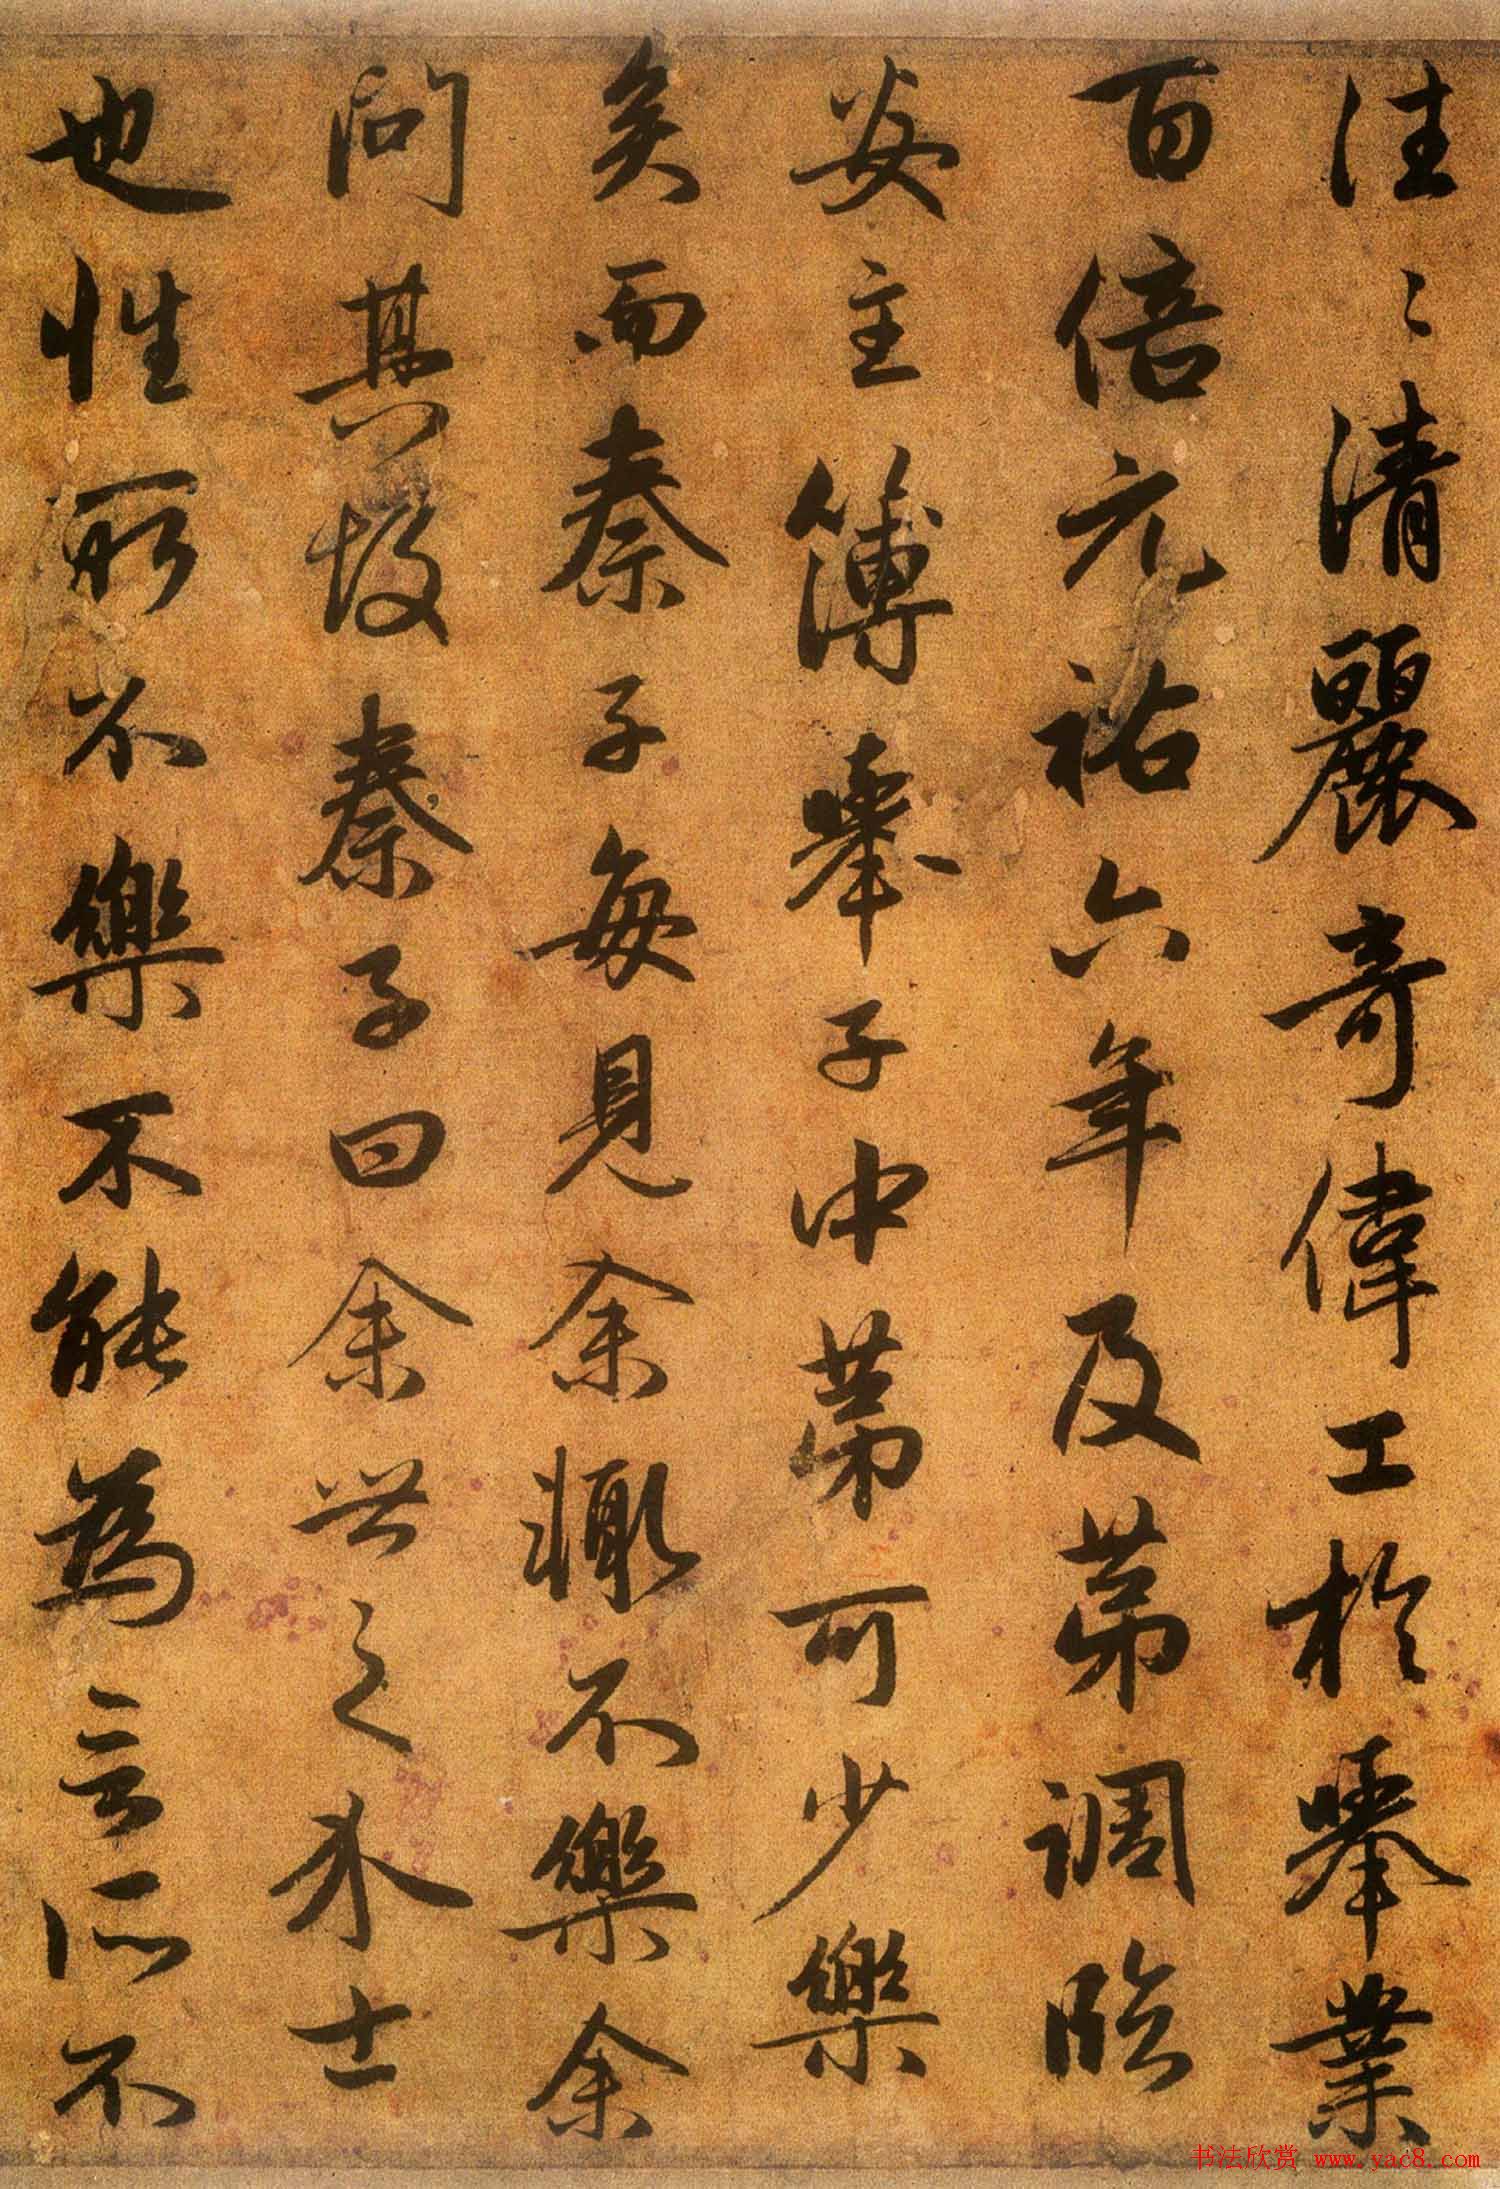 往〻清麗奇偉工於舉業
百倍元祐六年及苐調臨
安主簿舉子中苐可少樂
矣而秦子每見余輒不樂余
問其故秦子曰余世之介士
也性所不樂不能為言所不
书法欣赏 www.yac8.com